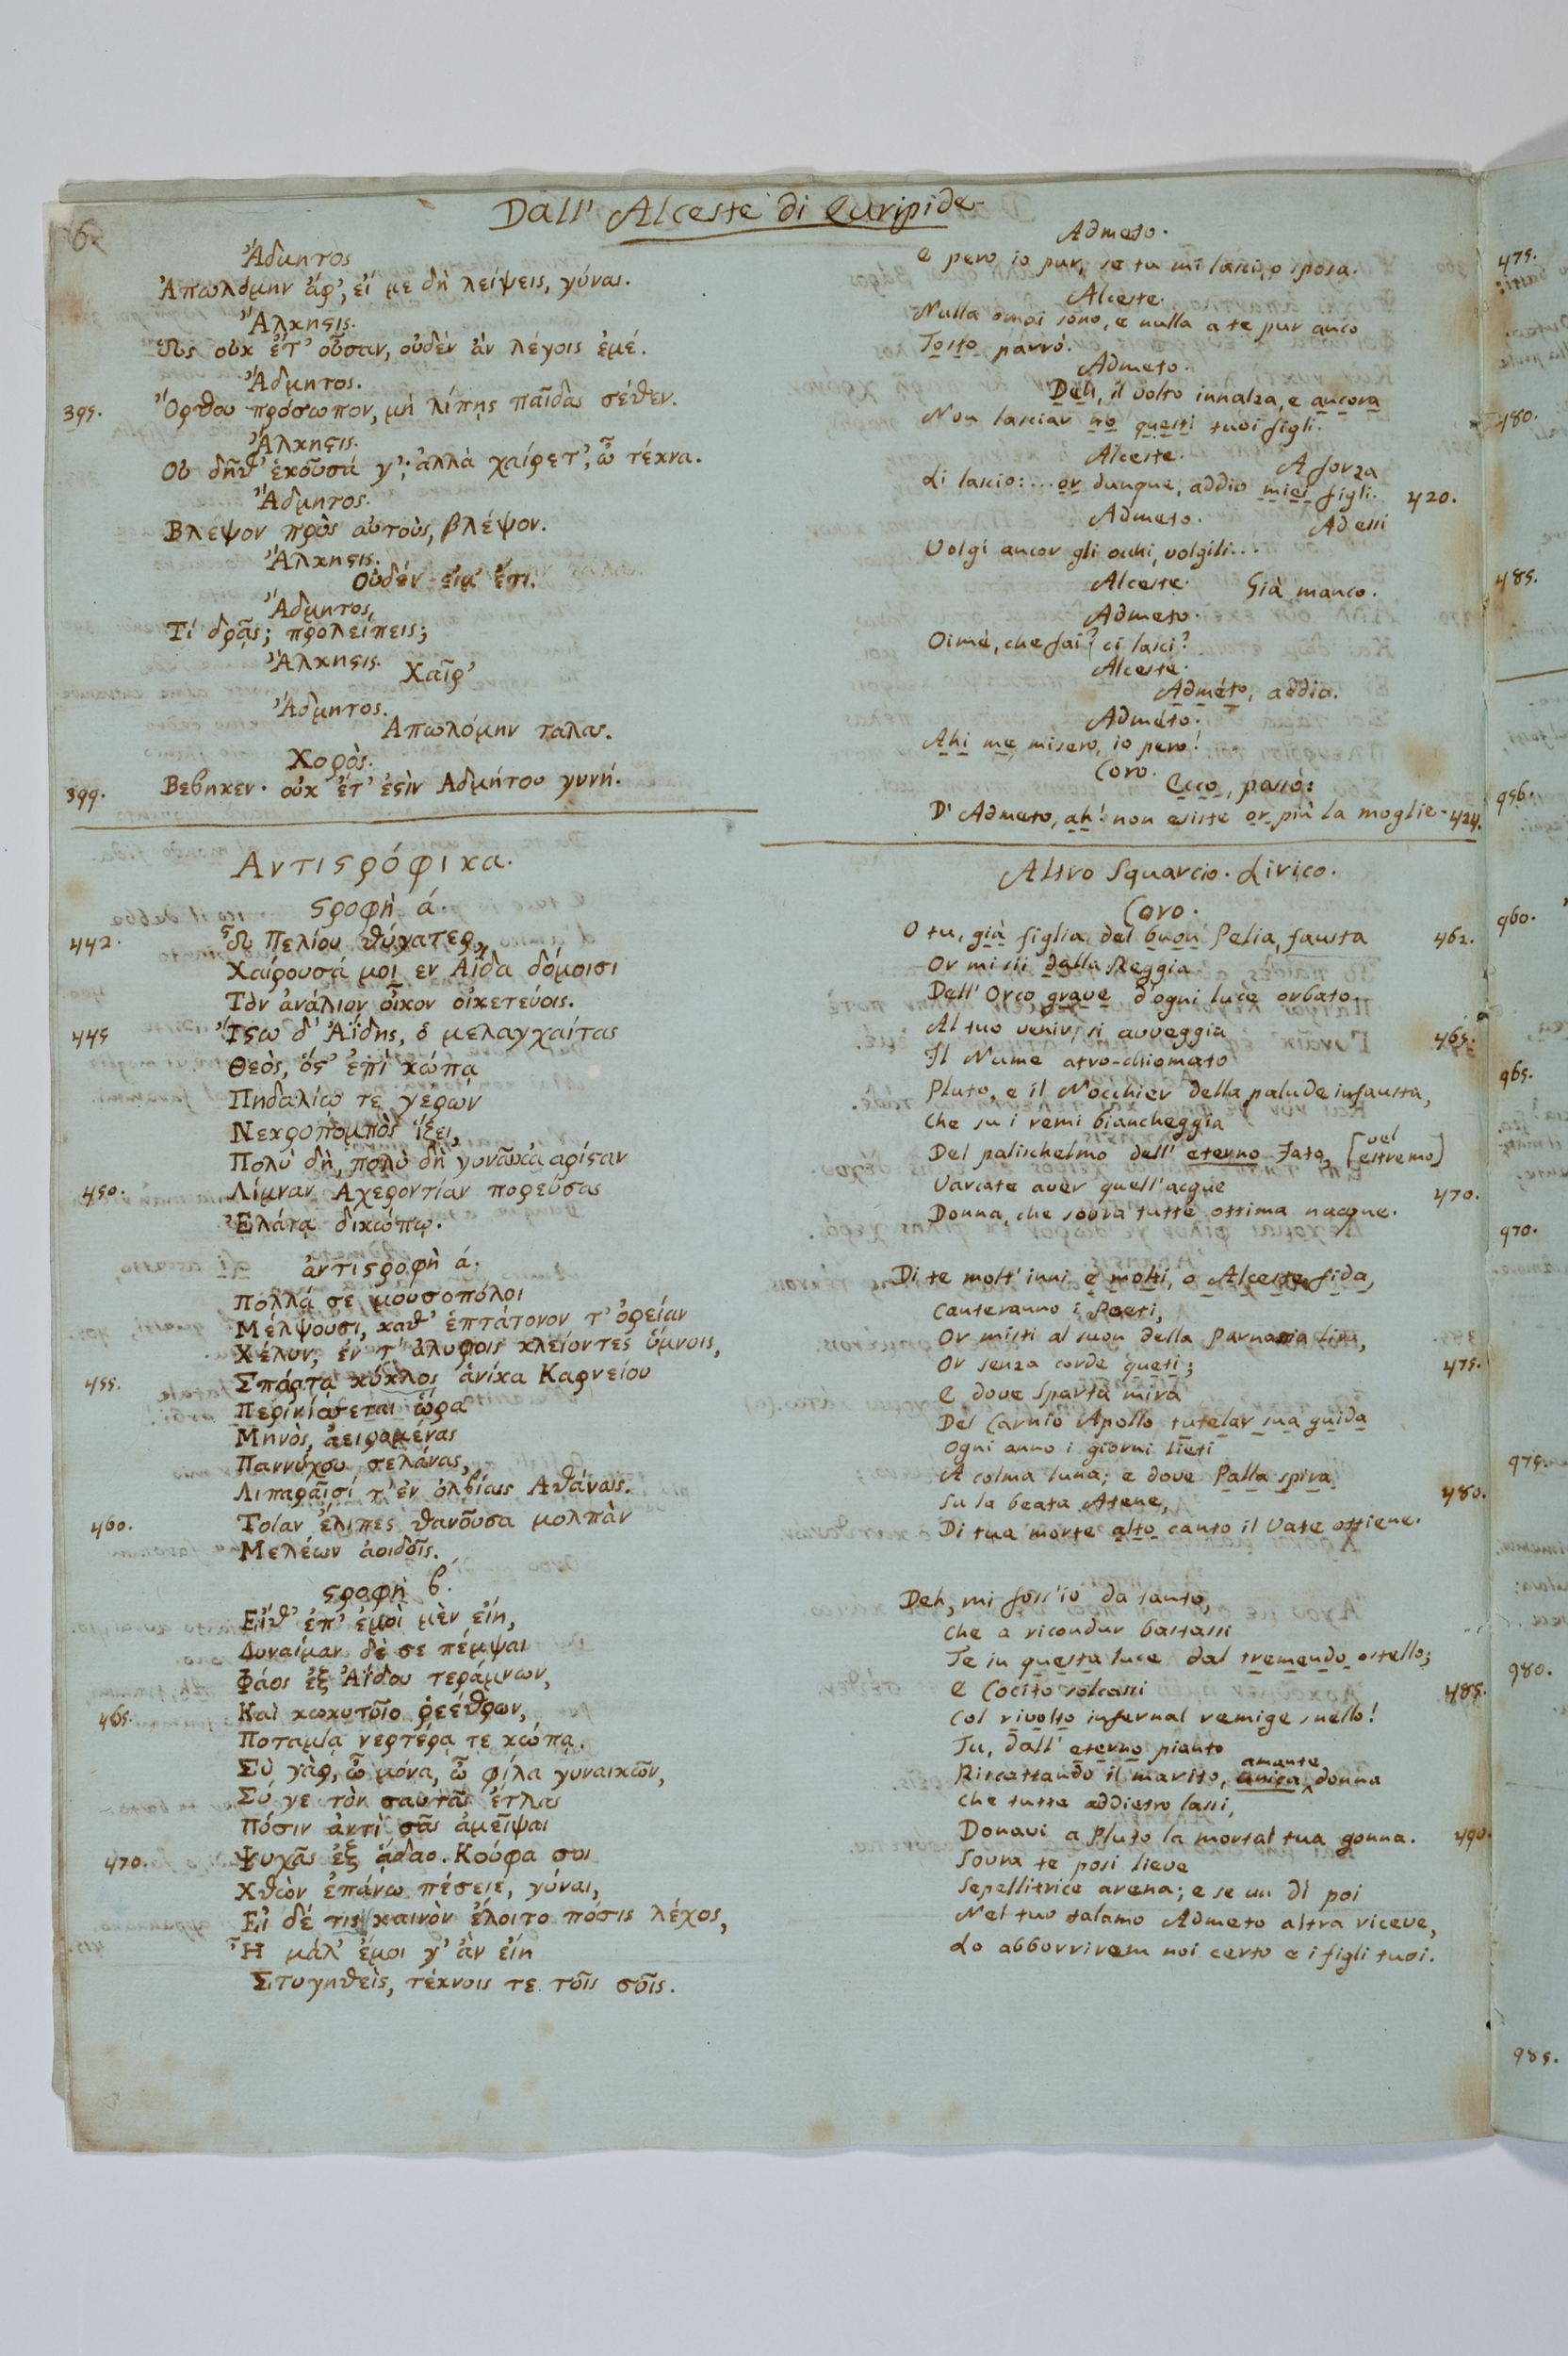 6
Dall' Alceste di Euripide
Ἄδμητος
Ἀπωλόμην ἄρ', εἴ με δὴ λείψεις, γύναι.
Ἄλκηϛις.
Ὡς οὐκ ἔτ' οὖσαν, οὐδὲν ἂν λέγοις ἐμέ.
Ἄδμητος.
395. Ὄρθου πρόσωπον, μὴ λίπῃς παῖδας σέθεν.
Ἄλκηϛις.
Οὐ δῆθ' ἑκοῦσά γ'; ἀλλὰ χαίρετ', ὦ τέκνα.
Ἄδμητος.
Βλέψον πρὸς αὐτοὺς, βλέψον.
Ἄλκηϛις.
Οὐδέν εἰμ' ἔτι.
Ἄδμητος,
Τί δρᾷς; προλείπεις;
Ἄλκηϛις.
Χαῖρ'
Ἄδμητος.
Απωλόμην ταλας.
Χορὸς.
399. Βεβηκεν· οὐκ ἔτ' ἐϛὶν Αδμήτου γυνή.
Αντιϛρόφικα.
ϛροφὴ ά.
442. Ὦ Πελίου θύγατερ,
Χαίρουσά μοι εν Αΐδα δόμοισι
Τὸν ἀνάλιον οἶκον οἰκετεύοις.
445 Ἴϛω δ' Ἀΐδης, ὁ μελαγχαίτας
Θεὸς, ὅς' ἐπὶ κώπᾳ
Πηδαλίῳ τε γερων
Νεκροπομπὸς ἵζει,
Πολὺ δὴ, πολὺ δὴ γυναῖκα αρίϛαν
450. Λίμναν Αχεροντίαν πορεύσας
Ἐλάτᾳ δικώπῳ.
ἀντιϛροφὴ ά.
Πολλά σε μουσοπόλοι
Μέλψουσι, καθ' ἑπτάτονον τ' ὀρείαν
Χέλυν, ἐν τ' ἀλυροις κλείοντες ὕμνοις,
455. Σπάρτᾳ κύκλος ἁνίκα Καρνείου
Περινίσσεται ὥρᾳ
Μηνὸς, ἀειρομένας
Παννύχου σελάνας,
Λιπαραῖσί τ' ἐν ὀλβίαις Αθάναις.
460. Τοίαν ἔλιπες θανοῦσα μολπὰν
Μελέων ἀοιδοῖς.
ϛροφὴ β.
Εἴθ' ἐπ' ἐμοὶ μὲν εἴη,
Δυναίμαν δὲ σε πέμψαι
Φάος ἐξ Ἀΐδου τεράμνων,
465. Καὶ κωκυτοῖο ῥεέθρων,
Ποταμίᾳ νερτέρᾳ τε κώπᾳ.
Σὺ γὰρ, ὦ μόνα, ὦ φίλα γυναικῶν,
Σύ γε τὸν σαυτᾶς ἔτλας
Πόσιν ἀντὶ σᾶς ἀμεῖψαι
470. Ψυχᾶς ἐξ ᾅδαο. Κούφα σοι
Χθὼν ἐπάνω πέσειέ, γύναι,
Εἰ δέ τις καινὸν ἕλοιτο πόσις λέχος,
Ἦ μάλ' ἔμοι γ' ἂν εἴη
Στυγηθεὶς, τέκνοις τε τοῖς σοῖς.
Admeto.
E pero io pur, se tu mi lasci, o sposa.
Alceste.
Nulla omai sono, e nulla a te pur anco
Tosto parrò.
Admeto.
Deh, il volto innalza, e ancora
Non lasciar no questi tuoi figli.
Alceste.
A forza
Li lascio:... or dunque, addio miei figli. 420.
Admeto.
Ad essi
Volgi ancor gli occhi, volgili...
Alceste. Già manco.
Admeto.
Oimè, che fai? ci lasci?
Alceste.
Admeto, addio.
Admeto.
Ahi me misero, io pero!
Coro.
Ecco, passò:
D' Admeto, ah! non esiste or più la moglie. 424.
Altro Squarcio Lirico.
Coro.
O tu, già figlia del buon Pelia, fausta 462.
Or mi sii dalla Reggia
Dell' Orco grave d'ogni luce orbato.
Al tuo venir, si avveggia 465.
Il Nume atro-chiomato
Pluto, e il Nocchier della palude infausta,
Che su i remi biancheggia
Del palischelmo dell' eterno Fato, [vel estremo]
Varcate aver quell'acque 470.
Donna, che sovra tutte ottima nacque.
Di te molt' inni e molti, o Alceste fida,
Canteranno i Poeti,
Or misti al suon della Parnassia lira,
Or senza corde queti; 475.
E dove Sparta mira
Del Carnio Apollo tutelar sua guida
Ogni anno i giorni lieti
A colma luna; e dove Palla spira
Su la beata Atene, 480.
Di tua morte alto canto il Vate ottiene.
Deh, mi foss' io da tanto,
Che a ricondur bastassi
Te in questa luce dal tremendo ostello;
E Cocito solcassi 485.
Col rivolto infernal remige snello!
Tu, dall' eterno pianto
Riscattando il marito, unica amante donna
Che tutte addietro lassi,
Donavi a Pluto la mortal tua gonna. 490.
Sovra te posi lieve
Sepellitrice arena; e se un dì poi
Nel tuo talamo Admeto altra riceve,
Lo abborrirem noi certo e i figli tuoi.
475.
480.
485.
956.
960.
965.
970.
975.
980.
985.